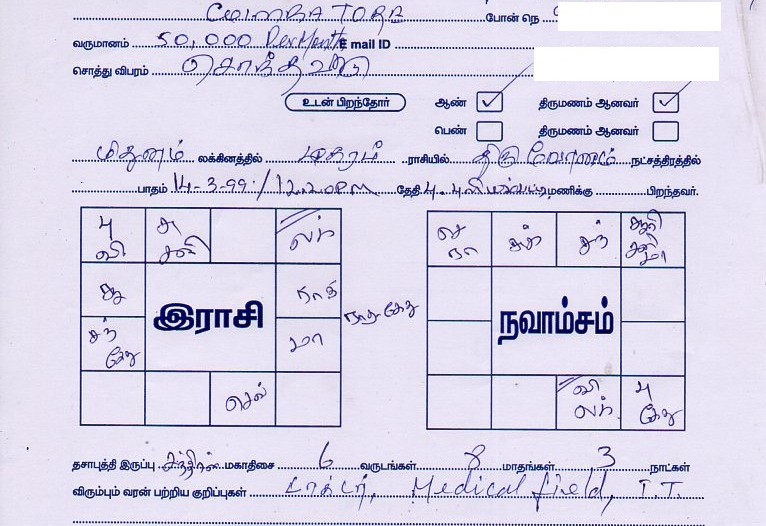 COIMBATORE போன் நெ
வருமானம் 50,000 Per Month E mail ID
சொத்து விபரம் சொந்த வீடு
உடன் பிறந்தோர் ஆண் ✓ திருமணம் ஆனவர் ✓
பெண் திருமணம் ஆனவர்
மிதுனம் லக்கினத்தில் மகரம் ராசியில் திருவோணம் நட்சத்திரத்தில்
பாதம் 14-3-99 / 12.20 P.M தேதி மணிக்கு பிறந்தவர்.
பு சு லக் செ
வி சனி ரா சுக் சந் சூரி
சனி
மா
சூ இராசி ராகு ராகு கேது நவாம்சம்
சந் மா
கேது
செவ் வி பு
லக். கேது
தசாபுத்தி இருப்பு சந்திரன் மகாதிசை 6 வருடங்கள் 8 மாதங்கள் 3 நாட்கள்
விரும்பும் வரன் பற்றிய குறிப்புகள் டாக்டர், Medical field, I.T.